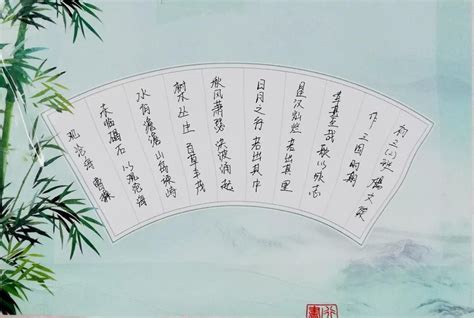 观沧海 曹操
东临碣石 以观沧海
水何澹澹 山岛竦峙
树木丛生 百草丰茂
秋风萧瑟 洪波涌起
日月之行 若出其中
星汉灿烂 若出其里
幸甚至哉 歌以咏志
作 三国时期
初三 班 杨文